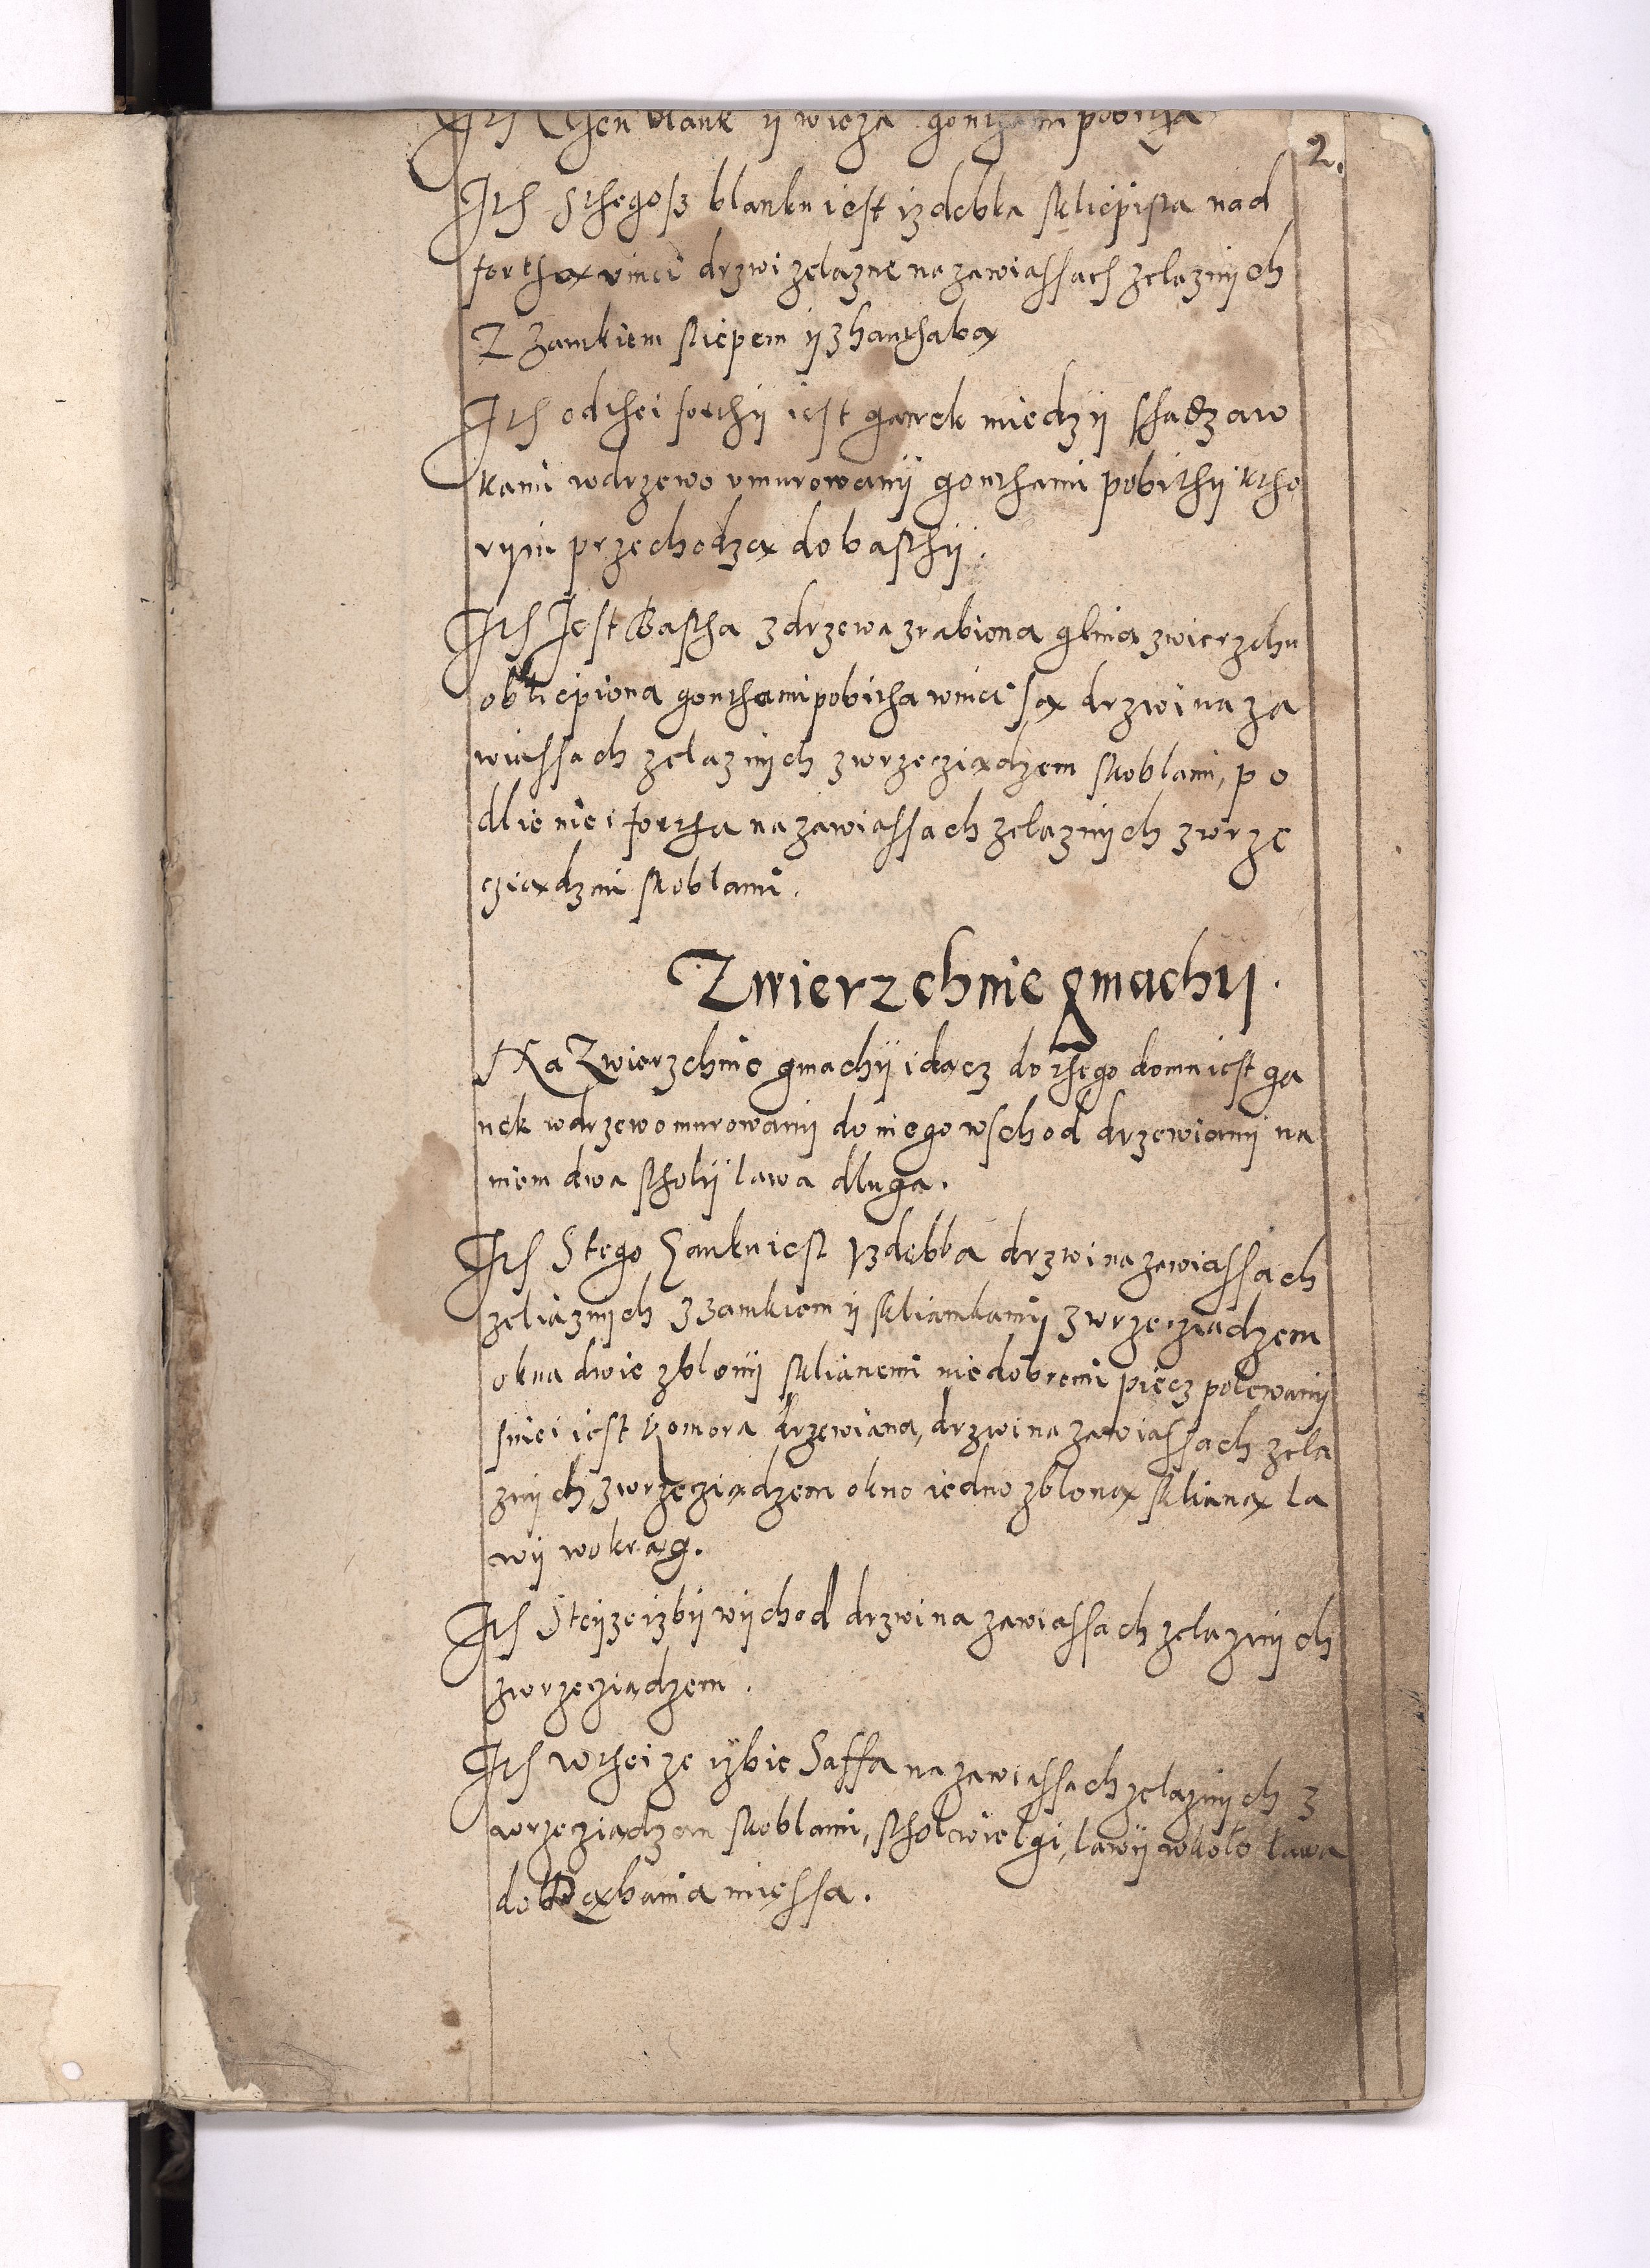 Ith Then blank y wieza gonthami pobitha
2.
Ith Sthegosz blanku iest izdebka skliepista nad
forthą vniei drzwi zelazne na zawiassach zelaznych
Z Zamkiem sliepem y z hanthabą
Ith od thei forthy iest ganek miedzy sthadzaw
kami wdrzewo vmurowany gonthami pobithy ktho
rym przechodzą do basthy.
Ith Jest Bastha z drzewa zrabiona glina zwierzchu
obliepiona gonthami pobitha wniei są drzwi na za
wiassach zelaznych zwrzecziądzem skoblami, po
dlie niei fortha na zawiassach zelaznych zwrze
cziądzmi skoblami.
Zwierzchnie gmachy.
Na Zwierzchnie gmachy idącz do thego domu iest ga
nek wdrzewo murowany do niego wschod drzewiany na
niem dwa stholy lawa dluga.
Ith Stego Ganku iest Izdebka drzwi na zawiassach
zeliaznych z zamkiem y skliamkamy zwrzecziądzem
okna dwie zblony sklianemi niedobremi piecz polewany
sniei iest komora drzewiana, drzwi na zawiassach zela
znych zwrzecziądzem okno iedno zbloną sklianą la
wy wokrąg.
Ith Steyze izby wychod drzwi na zawiassach zelaznych
zwrzecziądzem.
Ith wtheize izbie Saffa na zawiassach zelaznych z
wrzecziądzem skoblami, sthol wielgi, lawy wkolo lawa
do Rąbania miessa.